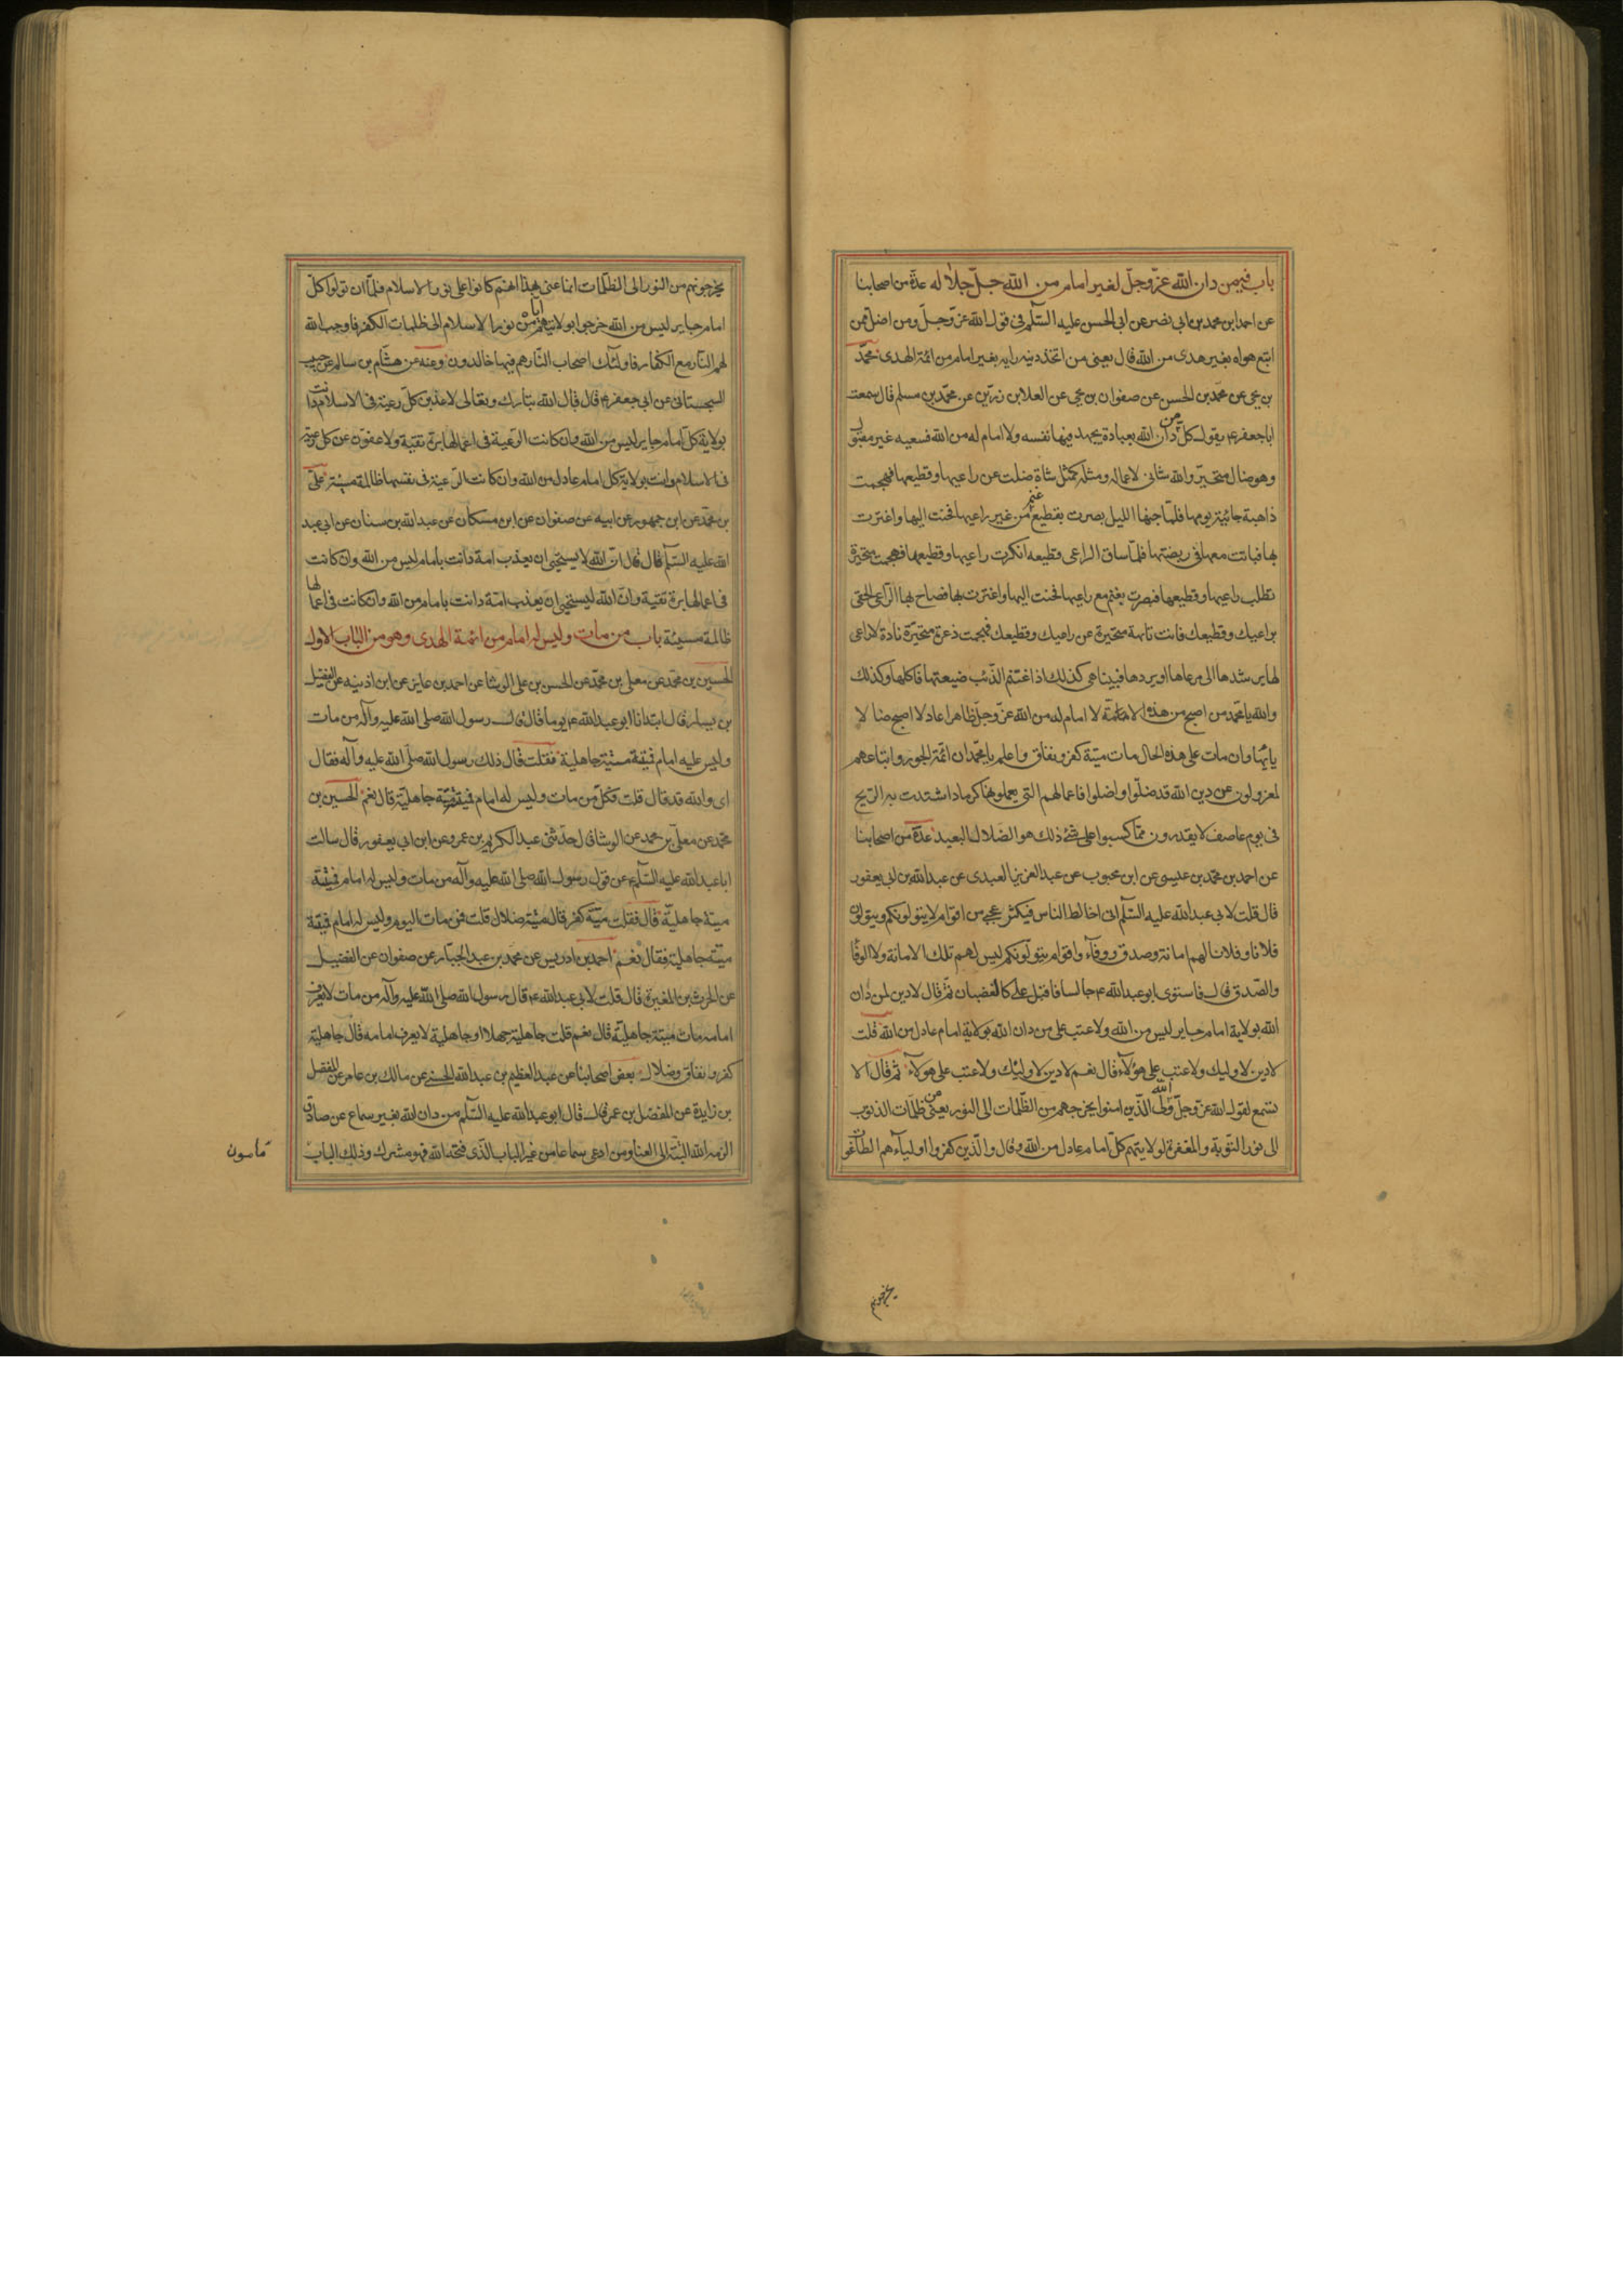 باب فيمن دان الله عزّ وجلّ لغير امام من الله جلّ جلاله عدّة من اصحابنا
عن احمد ابن محمد بن ابى نصر عن ابى الحسن عليه السّلم فى قول الله عزّ وجلّ ومن اضلّ ممن
اتبع هواه بغير هدى من الله قال يعنى من اتخذ دينه رايه بغير امام من ائمّة الهدى محمّد
بن يحيى عن محمّد بن الحسن عن صفوان بن يحيى عن العلا بن رزين عن محمّد بن مسلم قال سمعت
ابا جعفر ع يقول كلّ من دان الله بعبادة يجهد فيها نفسه ولا امام له من الله فسعيه غير مقبول
وهو ضال متحيّر والله شانئ لاعماله ومثله كمثل شاة ضلت عن راعيها وقطيعها فهجمت
ذاهبة جائية يومها فلمّا جنها الليل بصرت بقطيع غنم من غير راعيها فحنت اليها واغترت
بها فباتت معها فى ربضتها فلمّا ساق الراعى قطيعه انكرت راعيها وقطيعها فهجمت متحيّرة
تطلب راعيها وقطيعها فبصرت بغنم مع راعيها فحنت اليها واغترت بها فصاح بها الرّاعى الحقى
براعيك وقطيعك فانت تايهة متحيّرة عن راعيك وقطيعك فهجمت ذعرة متحيّرة نادة لا راعى
لها يرشدها الى مرعاها او يردها فبينا هى كذلك اذ اغتنم الذّئب ضيعتها فاكلها وكذلك
والله يا محمّد من اصبح من هذه الامّة لا امام له من الله عزّ وجلّ ظاهرا عادلا اصبح ضالا
تايها وان مات على هذه الحال مات ميتة كفر ونفاق واعلم يا محمّد ان ائمّة الجور واتباعهم
لمعزولون عن دين الله قد ضلّوا واضلوا فاعمالهم التى يعملونها كرماد اشتدت به الرّيح
فى يوم عاصف لا يقدرون ممّا كسبوا على شئ ذلك هو الضلال البعيد عدّة من اصحابنا
عن احمد بن محمّد بن عيسى عن ابن محبوب عن عبد العزيز العبدى عن عبد الله بن ابى يعفور
قال قلت لابى عبد الله عليه السّلم انى اخالط الناس فيكثر عجبى من اقوام لا يتولونكم ويتولون
فلانا وفلانا لهم امانة وصدق ووفآء واقوام يتولّونكم ليس لهم تلك الامانة ولا الوفا
والصّدق قال فاستوى ابو عبد الله ع جالسا فاقبل علىّ كالغضبان ثمّ قال لا دين لمن دان
الله بولاية امام جاير ليس من الله ولا عتب على من دان الله بولاية امام عادل من الله قلت
لا دين لاوليك ولا عتب على هؤلآء قال نعم لا دين لاولئك ولا عتب على هولآء ثمّ قال الا
تسمع لقول الله عزّ وجلّ الله ولى الّذين امنوا يخرجهم من الظّلمات الى النور يعنى من ظلمات الذنوب
الى نور التّوبة والمغفرة لولايتهم كلّ امام عادل من الله وقال والّذين كفروا اولياءهم الطاغوت
يخرجونهم
يخرجونهم من النور الى الظلّمات انما عنى بهذا انهم كانوا على نور الاسلام فلمّا ان تولوا كلّ
امام جاير ليس من الله خرجوا بولايتهم ايّاه من نور الاسلام الى ظلمات الكفر فاوجب الله
لهم النّار مع الكفّار فاولئك اصحاب النّار هم فيها خالدون وعنه عن هشام بن سالم عن حبيب
السجستانى عن ابى جعفر ع قال قال الله تبارك وتعالى لاعذبن كلّ رعيّة فى الاسلام دانت
بولاية كلّ امام جاير ليس من الله وان كانت الرّعيّة فى اعمالها برة تقيّة ولاعفونّ عن كلّ رعيّة
فى الاسلام دانت بولاية كل امام عادل من الله وان كانت الرّعيّة فى نفسها ظالمة مسيئة علىّ
بن محمّد عن ابن جمهور عن ابيه عن صفوان عن ابن مسكان عن عبد الله بن سنان عن ابى عبد
الله عليه السّلم قال قال انّ الله لا يستحيى ان يعذب امة دانت بامام ليس من الله وان كانت
فى اعمالها برة تقيّة وانّ الله ليستحيى ان يعذب امّة دانت بامام من الله وان كانت فى اعمالها
ظالمة مسيئة باب من مات وليس له امام من ائمة الهدى وهو من الباب الاول
الحسين بن محمّد عن معلى بن محمّد عن الحسن بن على الوشا عن احمد بن عايذ عن ابن اذينه عن الفضيل
بن يسار قال ابتدانا ابو عبد الله ع يوما قال قال رسول الله صلى الله عليه وآله من مات
وليس عليه امام فميتة ميتة جاهلية فقلت قال ذلك رسول الله صلّى الله عليه وآله فقال
اى والله قد قال قلت فكلّ من مات وليس له امام فميتته ميتة جاهليّة قال نعم الحسين بن
محمّد عن معلّى بن محمد عن الوشا قال حدّثنى عبد الكريم بن عمرو عن ابن ابى يعفور قال سالت
ابا عبد الله عليه السّلم عن قول رسول الله صلى الله عليه وآله من مات وليس له امام فميتة
ميتة جاهليّة قال فقلت ميتة كفر قال ميتة ضلال قلت فمن مات اليوم وليس له امام فميتة
ميتة جاهلية فقال نعم احمد بن ادريس عن محمّد بن عبد الجبّار عن صفوان عن الفضيل
عن الحرث بن المغيرة قال قلت لابى عبد الله ع قال رسول الله صلى الله عليه وآله من مات لا يعرف
امامه مات ميتة جاهليّة قال نعم قلت جاهلية جهلا او جاهلية لا يعرف امامه قال جاهلية
كفر ونفاق وضلال بعض اصحابنا عن عبد العظيم بن عبد الله الحسنى عن مالك بن عامر عن المفضل
بن زايدة عن المفضّل بن عمر قال قال ابو عبد الله عليه السّلم من دان الله بغير سماع عن صادق
الزمه الله البتّة الى العنا ومن ادعى سماعا من غير الباب الّذى فتحه الله فهو مشرك وذلك الباب